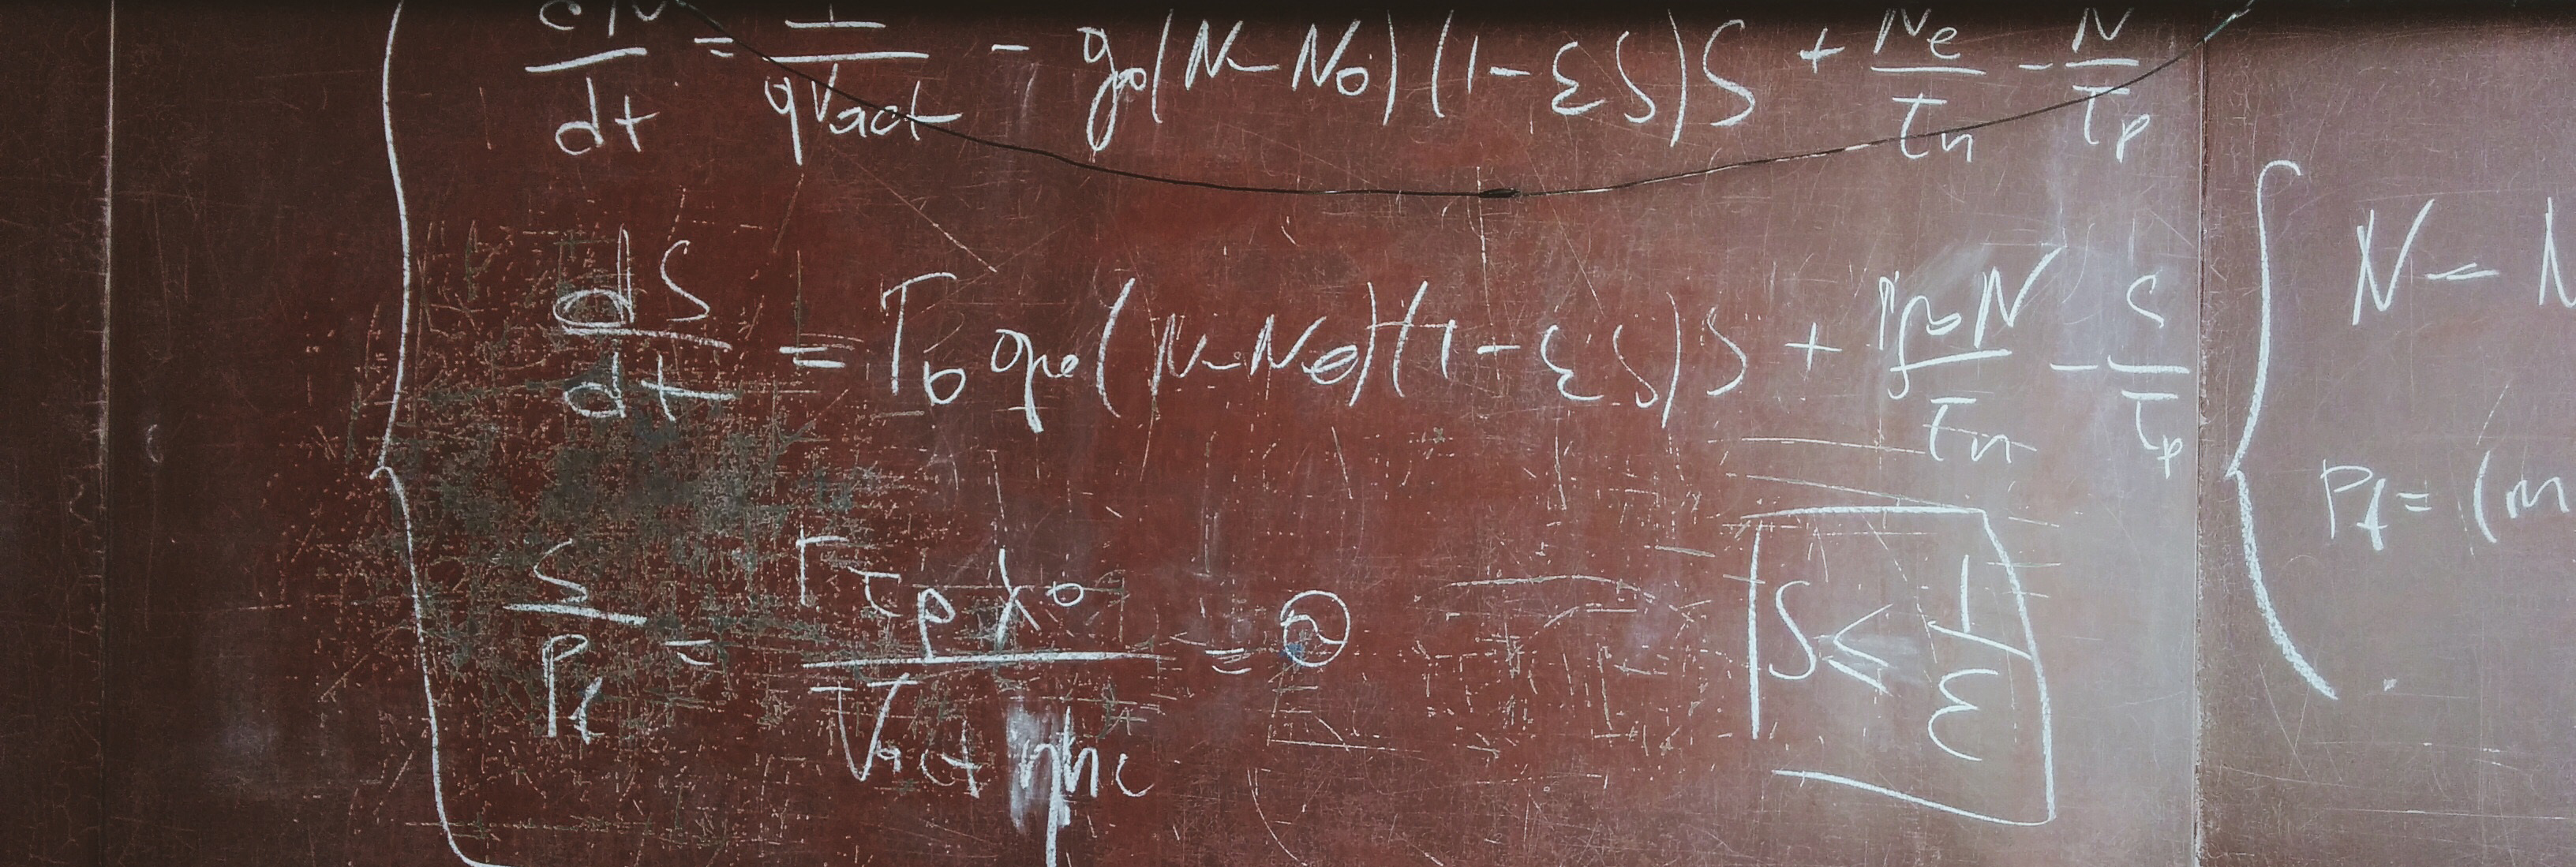 dN/dt = I/qVact - g₀(N-N₀)(1-εS)S + Ne/τn - N/τp
dS/dt = Γ₀g₀(N-N₀)(1-εS)S + ΓβN/τn - S/τp
S/Pf = Γτpλ₀/Vactηhc = ϑ
S ≤ 1/ε
N - N
Pf = (m